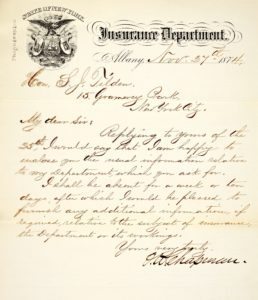 STATE OF NEW YORK.
Insurance Department.
Albany, Nov. 27th 1874.
Hon. S. J. Tilden,
15 Gramercy Park,
New York City.
My dear Sir:
Replying to yours of the
25th I would say that I am happy to
enclose you the usual information relative
to my department which you ask for.
I shall be absent for a week or ten
days, after which I would be pleased to
furnish any additional information, if
required, relative to the subject of insurance,
the Department or its workings.
Yours very truly,
Chapman.